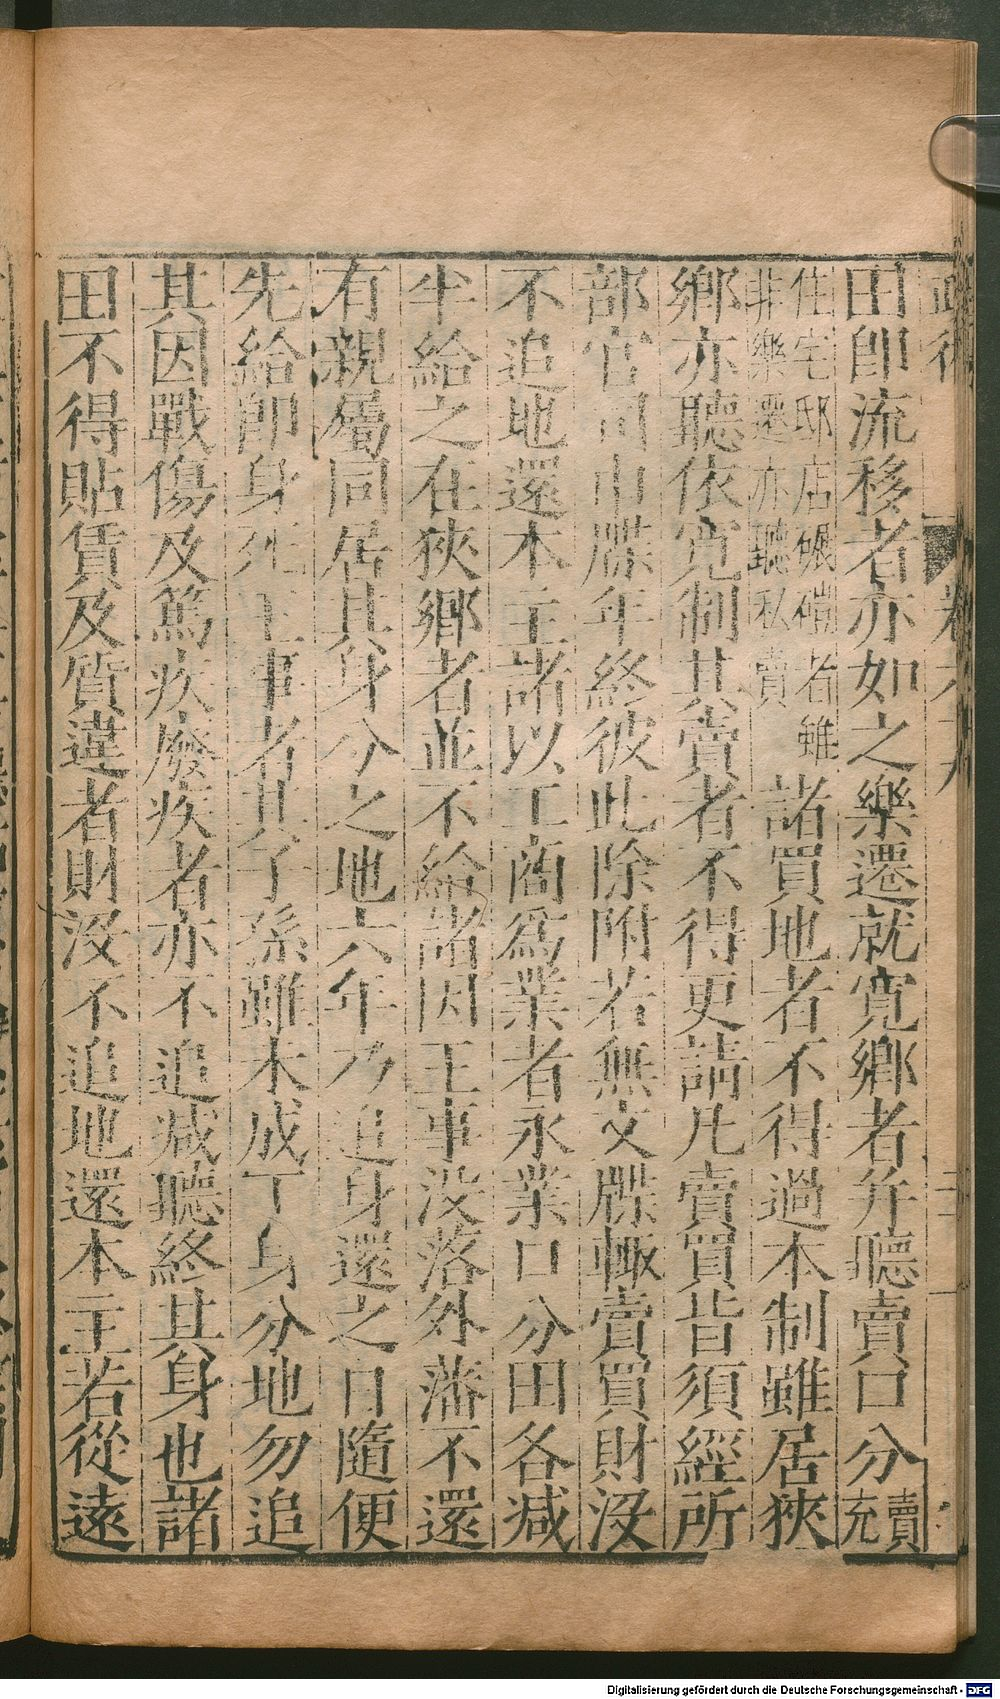 田即流移者亦如之樂遷就寬鄉者并聽賣口分賣充
住宅邸店碾磑者雖
非樂遷亦聽私賣
諸買地者不得過本制雖居狹
鄉亦聽依寬制其賣者不得更請凡賣買皆須經所
部官司申牒年終彼此除附若無文牒輙賣買財沒
不追地還本主諸以工商為業者永業口分田各減
半給之在狹鄉者並不給諸因王事没落外藩不還
有親屬同居其身分之地六年乃追身還之日隨便
先給即身死王事者其子孫雖未成丁身分地勿追
其因戰傷及篤疾廢疾者亦不追減聽終其身也諸
田不得貼賃及質違者財沒不追地還本主若從遠
Digitalisierung gefördert durch die Deutsche Forschungsgemeinschaft - DFG